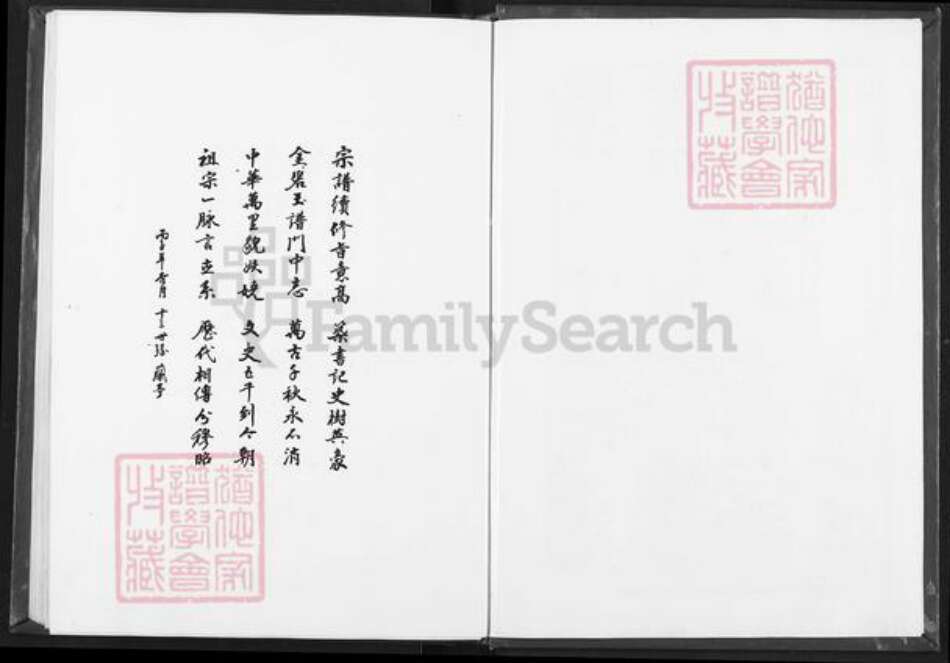 宗譜續修首意高 葉書記史樹英豪
金君玉譜門中志 萬古千秋永不消
中華萬里貌妖嬈 文史五千到今朝
祖宗一脉言立系 歷代相傳分穆昭
丙子年 月 十三世孫
猶他家
譜學會
收藏
猶他家
譜學會
收藏
FamilySearch